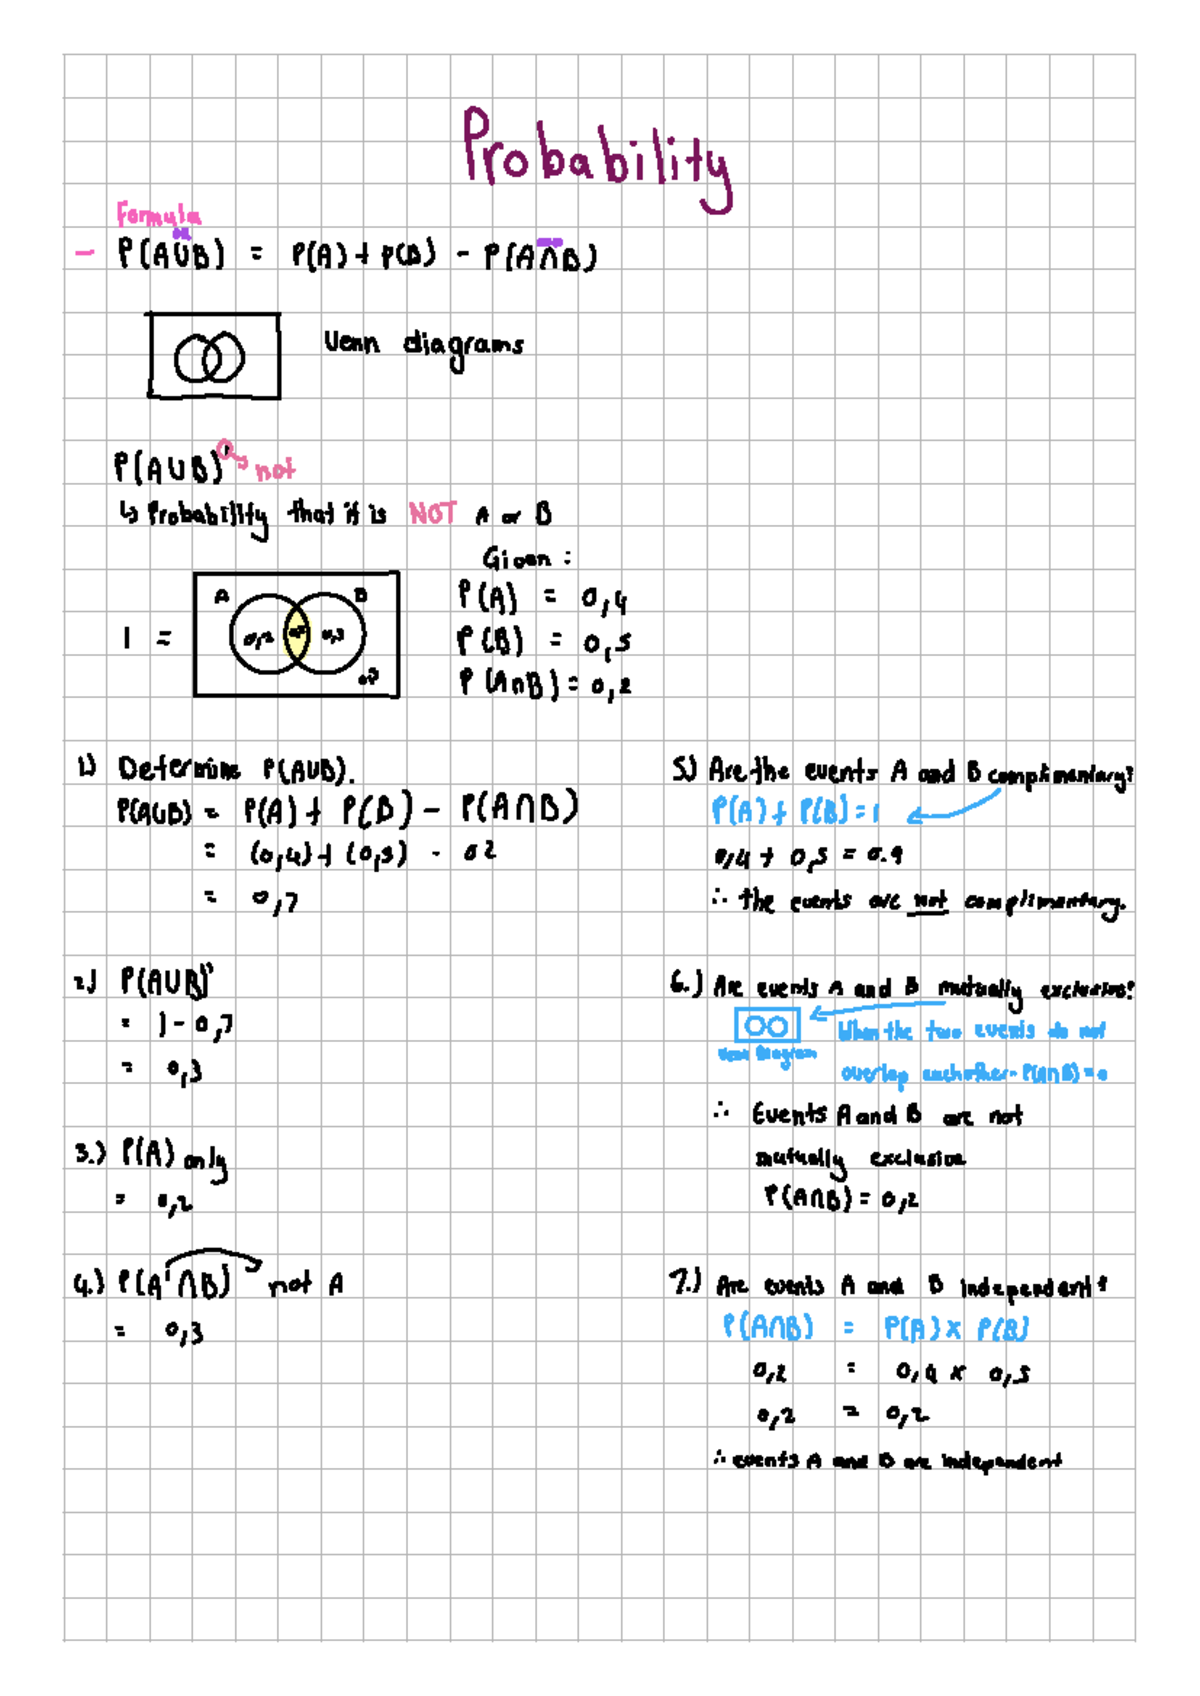 Probability
Formula
or
- P(A∪B) = P(A) + P(B) - P(A∩B)
Venn diagrams
P(A∪B)' → not
↳ Probability that it is NOT A or B
Given :
P(A) = 0,4
P(B) = 0,5
P(A∩B) = 0,2
A B
1 = 0,2 0,2 0,3
0,3
1.) Determine P(A∪B).
P(A∪B) = P(A) + P(B) - P(A∩B)
= (0,4) + (0,5) - 0 2
= 0,7
2.) P(A∪B)'
= 1 - 0,7
= 0,3
3.) P(A) only
= 0,2
4.) P(A'∩B) not A
= 0,3
5.) Are the events A and B complimentary?
P(A) + P(B) = 1
0,4 + 0,5 = 0.9
∴ the events are not complimentary.
6.) Are events A and B mutually exclusive?
When the two events do not
Venn Diagram
overlap eachother - P(A∩B) = 0
∴ Events A and B are not
mutually exclusive
P(A∩B) = 0,2
7.) Are events A and B independent?
P(A∩B) = P(A) x P(B)
0,2 = 0,4 x 0,5
0,2 = 0,2
∴ events A and B are independent